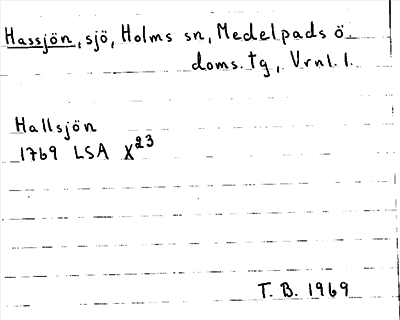 Hassjön, sjö, Holms sn, Medelpads ö.
doms. tg, Vrnl. l.
Hallsjön
1769 LSA X23
T. B. 1969